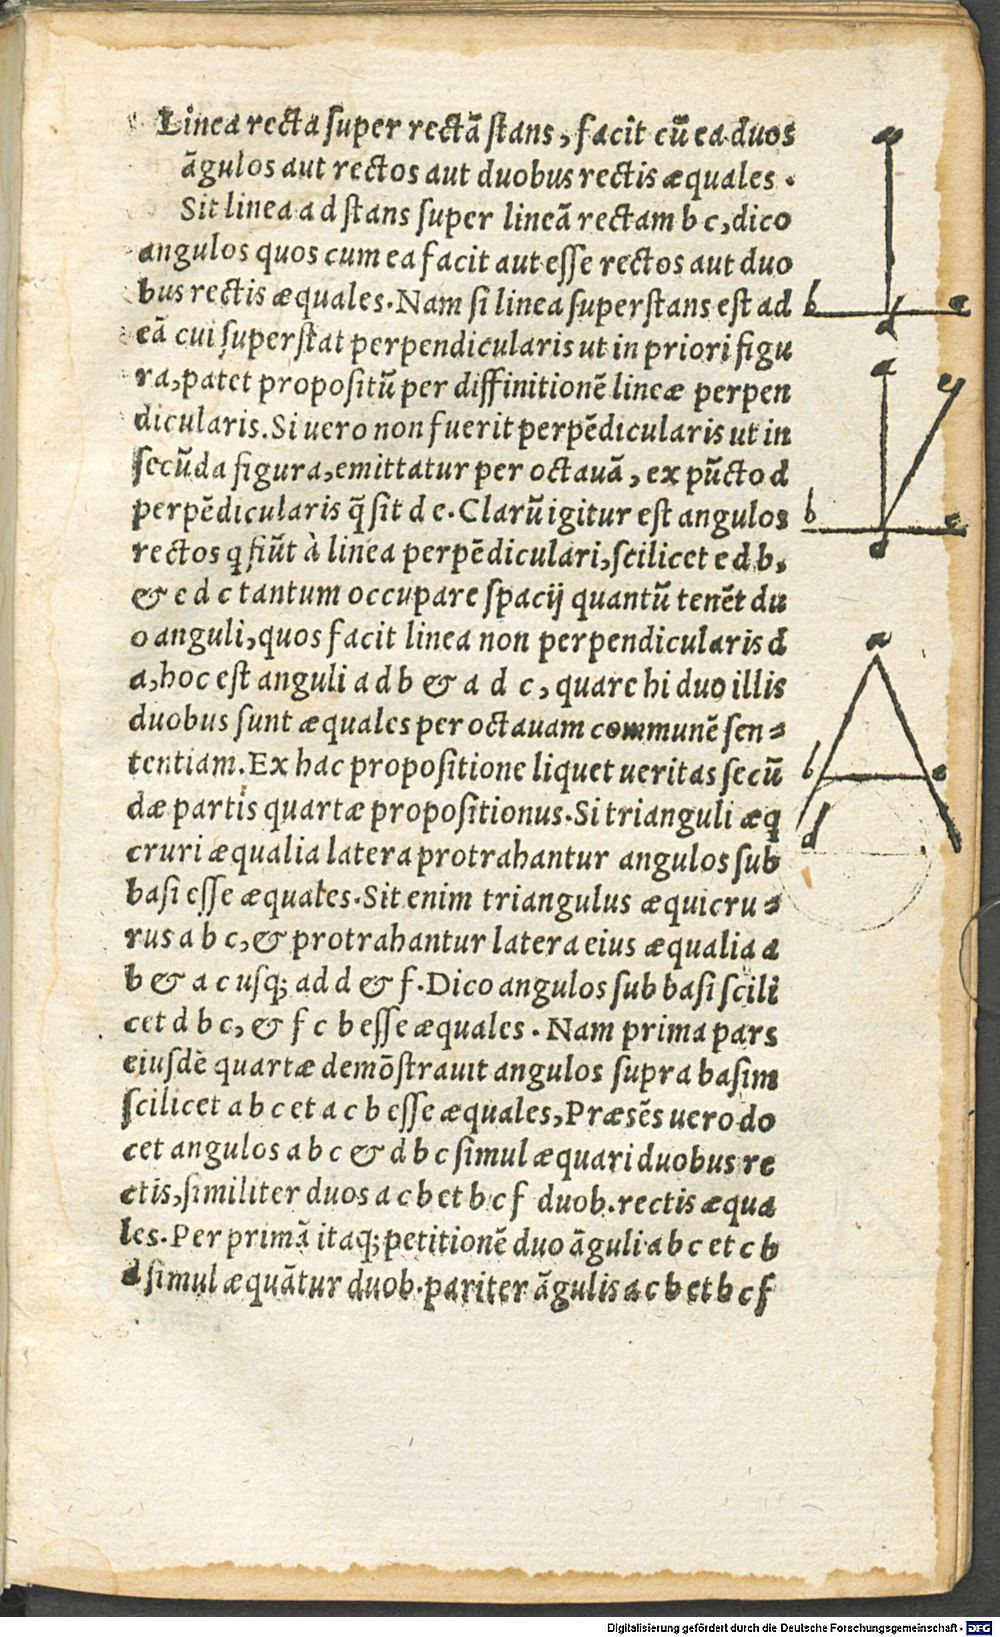 Linea recta super rectã stans, facit cũ ea duos
ãgulos aut rectos aut duobus rectis æquales.
Sit linea a d stans super lineã rectam b c, dico
angulos quos cum ea facit aut esse rectos aut duo
bus rectis æquales. Nam si linea superstans est ad
eã cui superstat perpendicularis ut in priori figu
ra, patet propositũ per diffinitionẽ lineæ perpen
dicularis. Si uero non fuerit perpẽdicularis ut in
secũda figura, emittatur per octauã, ex pũcto d
perpẽdicularis q̃ sit d e. Clarũ igitur est angulos
rectos q fiũt à linea perpẽdiculari, scilicet e d b,
& e d c tantum occupare spacij quantũ tenẽt du
o anguli, quos facit linea non perpendicularis d
a, hoc est anguli a d b & a d c, quare hi duo illis
duobus sunt æquales per octauam communẽ sen⸗
tentiam. Ex hac propositione liquet ueritas secũ
dæ partis quartæ propositionus. Si trianguli æq
cruri æqualia latera protrahantur angulos sub
basi esse æquales. Sit enim triangulus æquicru⸗
rus a b c, & protrahantur latera eius æqualia a
b & a c usq; ad d & f. Dico angulos sub basi scili
cet d b c, & f c b esse æquales. Nam prima pars
eiusdẽ quartæ demõstrauit angulos supra basim
scilicet a b c et a c b esse æquales, Præsẽs uero do
cet angulos a b c & d b c simul æquari duobus re
ctis, similiter duos a c b et b c f duob. rectis æqua
les. Per primã itaq; petitionẽ duo ãguli a b c et c b
d simul æquãtur duob. pariter ãgulis a c b et b c f
a
b
d
c
a
e
b
c
d
a
b
c
d
f
Digitalisierung gefördert durch die Deutsche Forschungsgemeinschaft - DFG